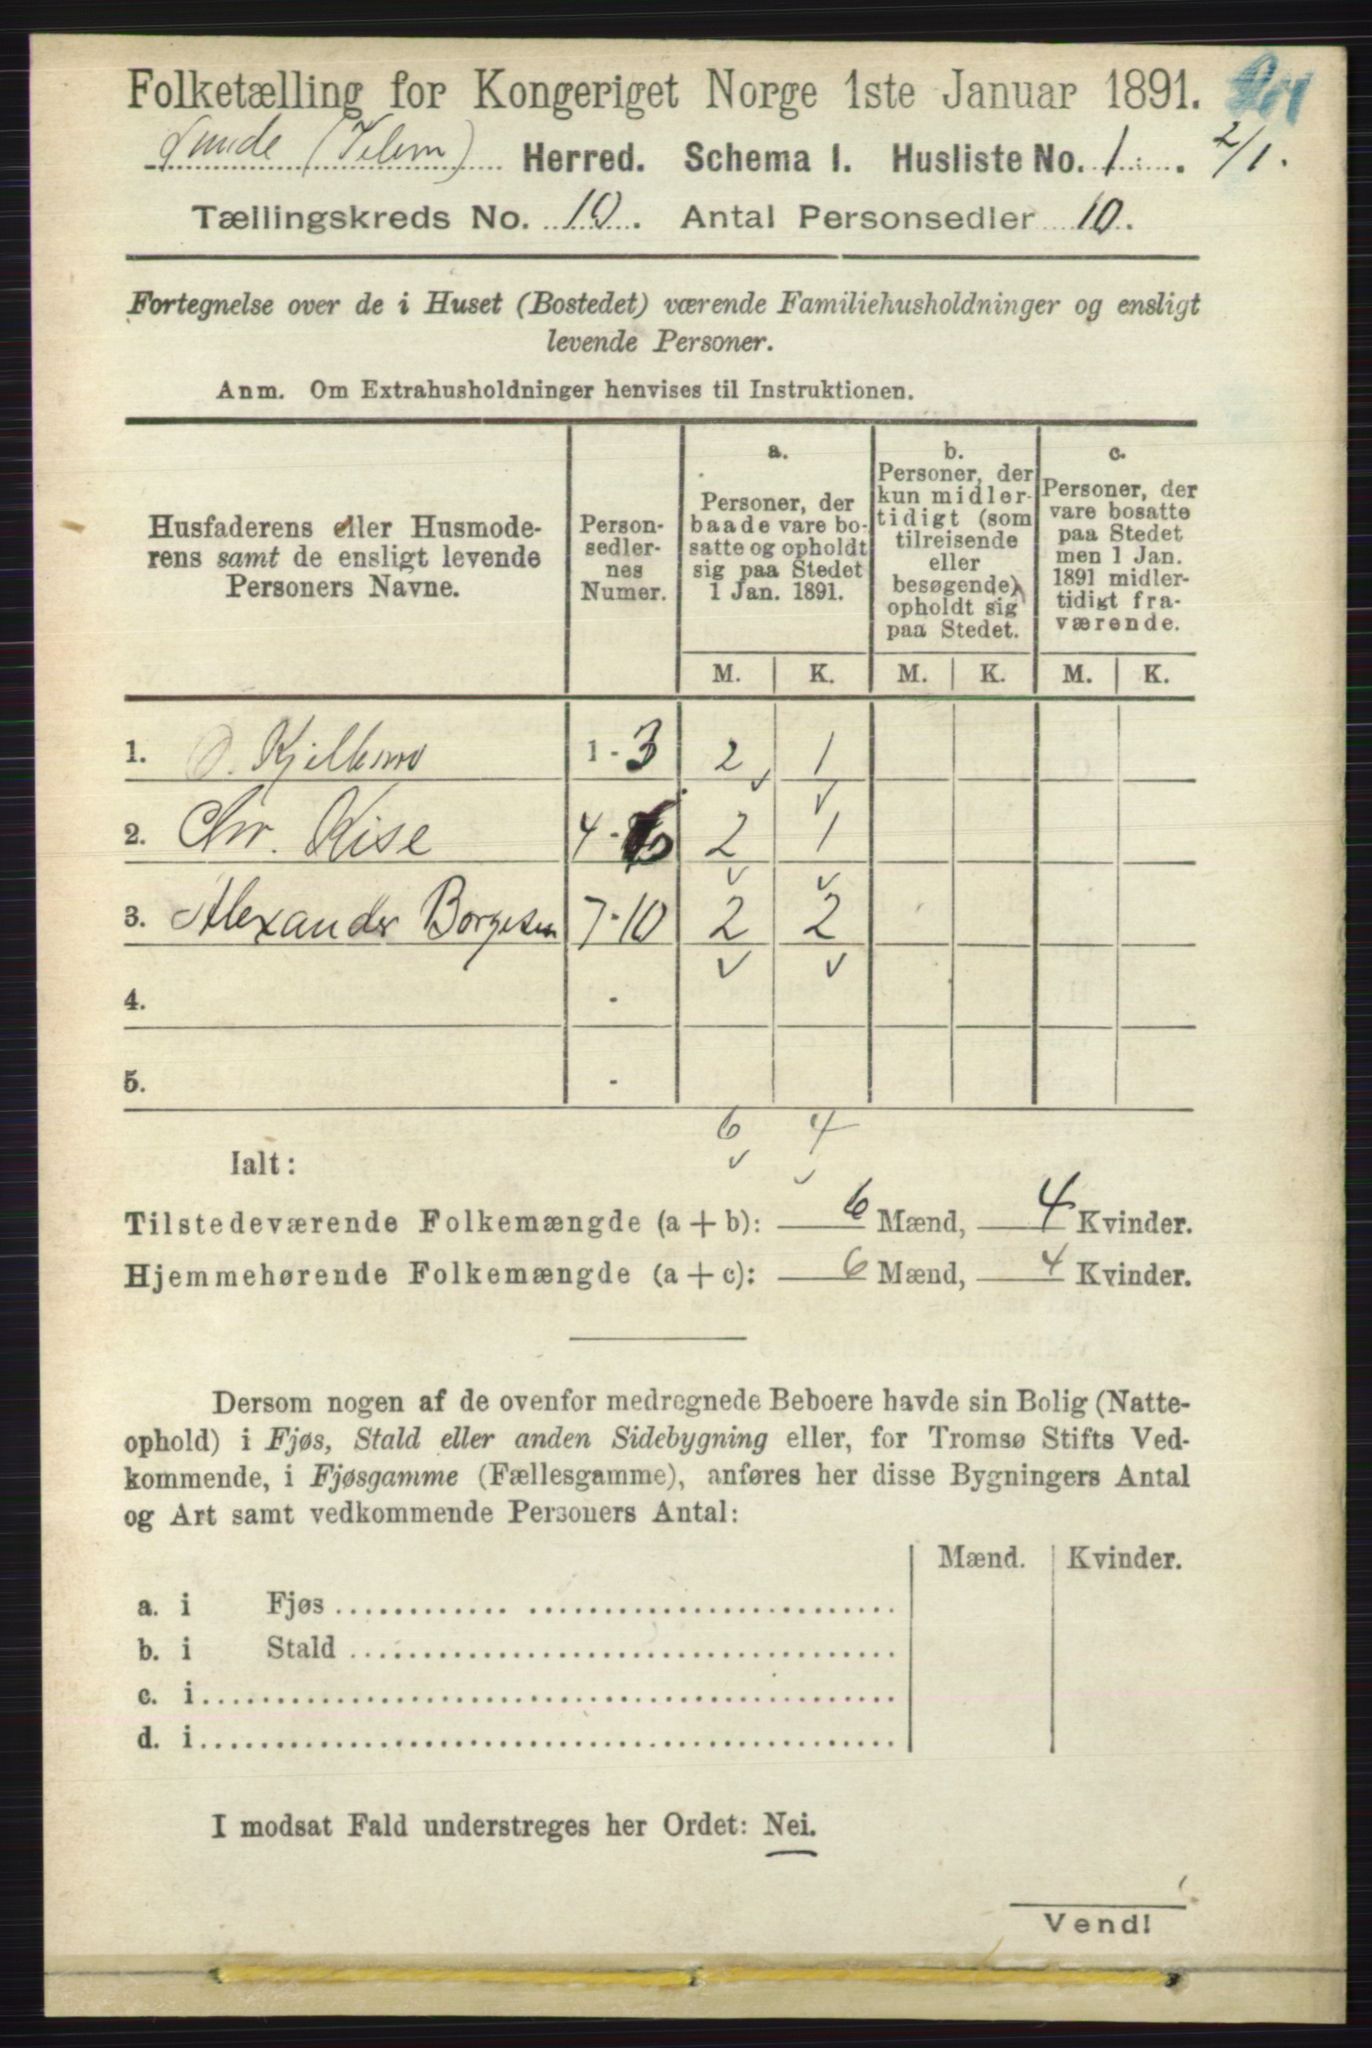 Folketælling for Kongeriget Norge 1ste Januar 1891.
Lunde (Telem) Herred. Schema I. Husliste No. 1. 2/1.
Tællingskreds No. 10. Antal Personsedler 10.
Fortegnelse over de i Huset (Bostedet) værende Familiehusholdninger og ensligt
levende Personer.
Anm. Om Extrahusholdninger henvises til Instruktionen.
Husfaderens eller Husmode-
rens samt de ensligt levende
Personers Navne.
Person-
sedler-
nes
Numer.
a.
Personer, der
baade vare bo-
satte og opholdt
sig paa Stedet
1 Jan. 1891.
b.
Personer, der
kun midler-
tidigt (som
tilreisende
eller
besøgende)
opholdt sig
paa Stedet.
c.
Personer, der
vare bosatte
paa Stedet
men 1 Jan.
1891 midler-
tidigt fra-
værende.
M. K. M. K. M. K.
1. 1 - 3 2 1
2. Chr. Kise 4 - 6 2 1
3. Alexander Borgesen 7 - 10 2 2
4. -
5. -
6 4
Ialt:
Tilstedeværende Folkemængde (a + b): 6 Mænd, 4 Kvinder.
Hjemmehørende Folkemængde (a + c): 6 Mænd, 4 Kvinder.
Dersom nogen af de ovenfor medregnede Beboere havde sin Bolig (Natte-
ophold) i Fjøs, Stald eller anden Sidebygning eller, for Tromsø Stifts Ved-
kommende, i Fjøsgamme (Fællesgamme), anføres her disse Bygningers Antal
og Art samt vedkommende Personers Antal:
Mænd. Kvinder.
a. i Fjøs
b. i Stald
c. i
d. i
I modsat Fald understreges her Ordet: Nei.
Vend!